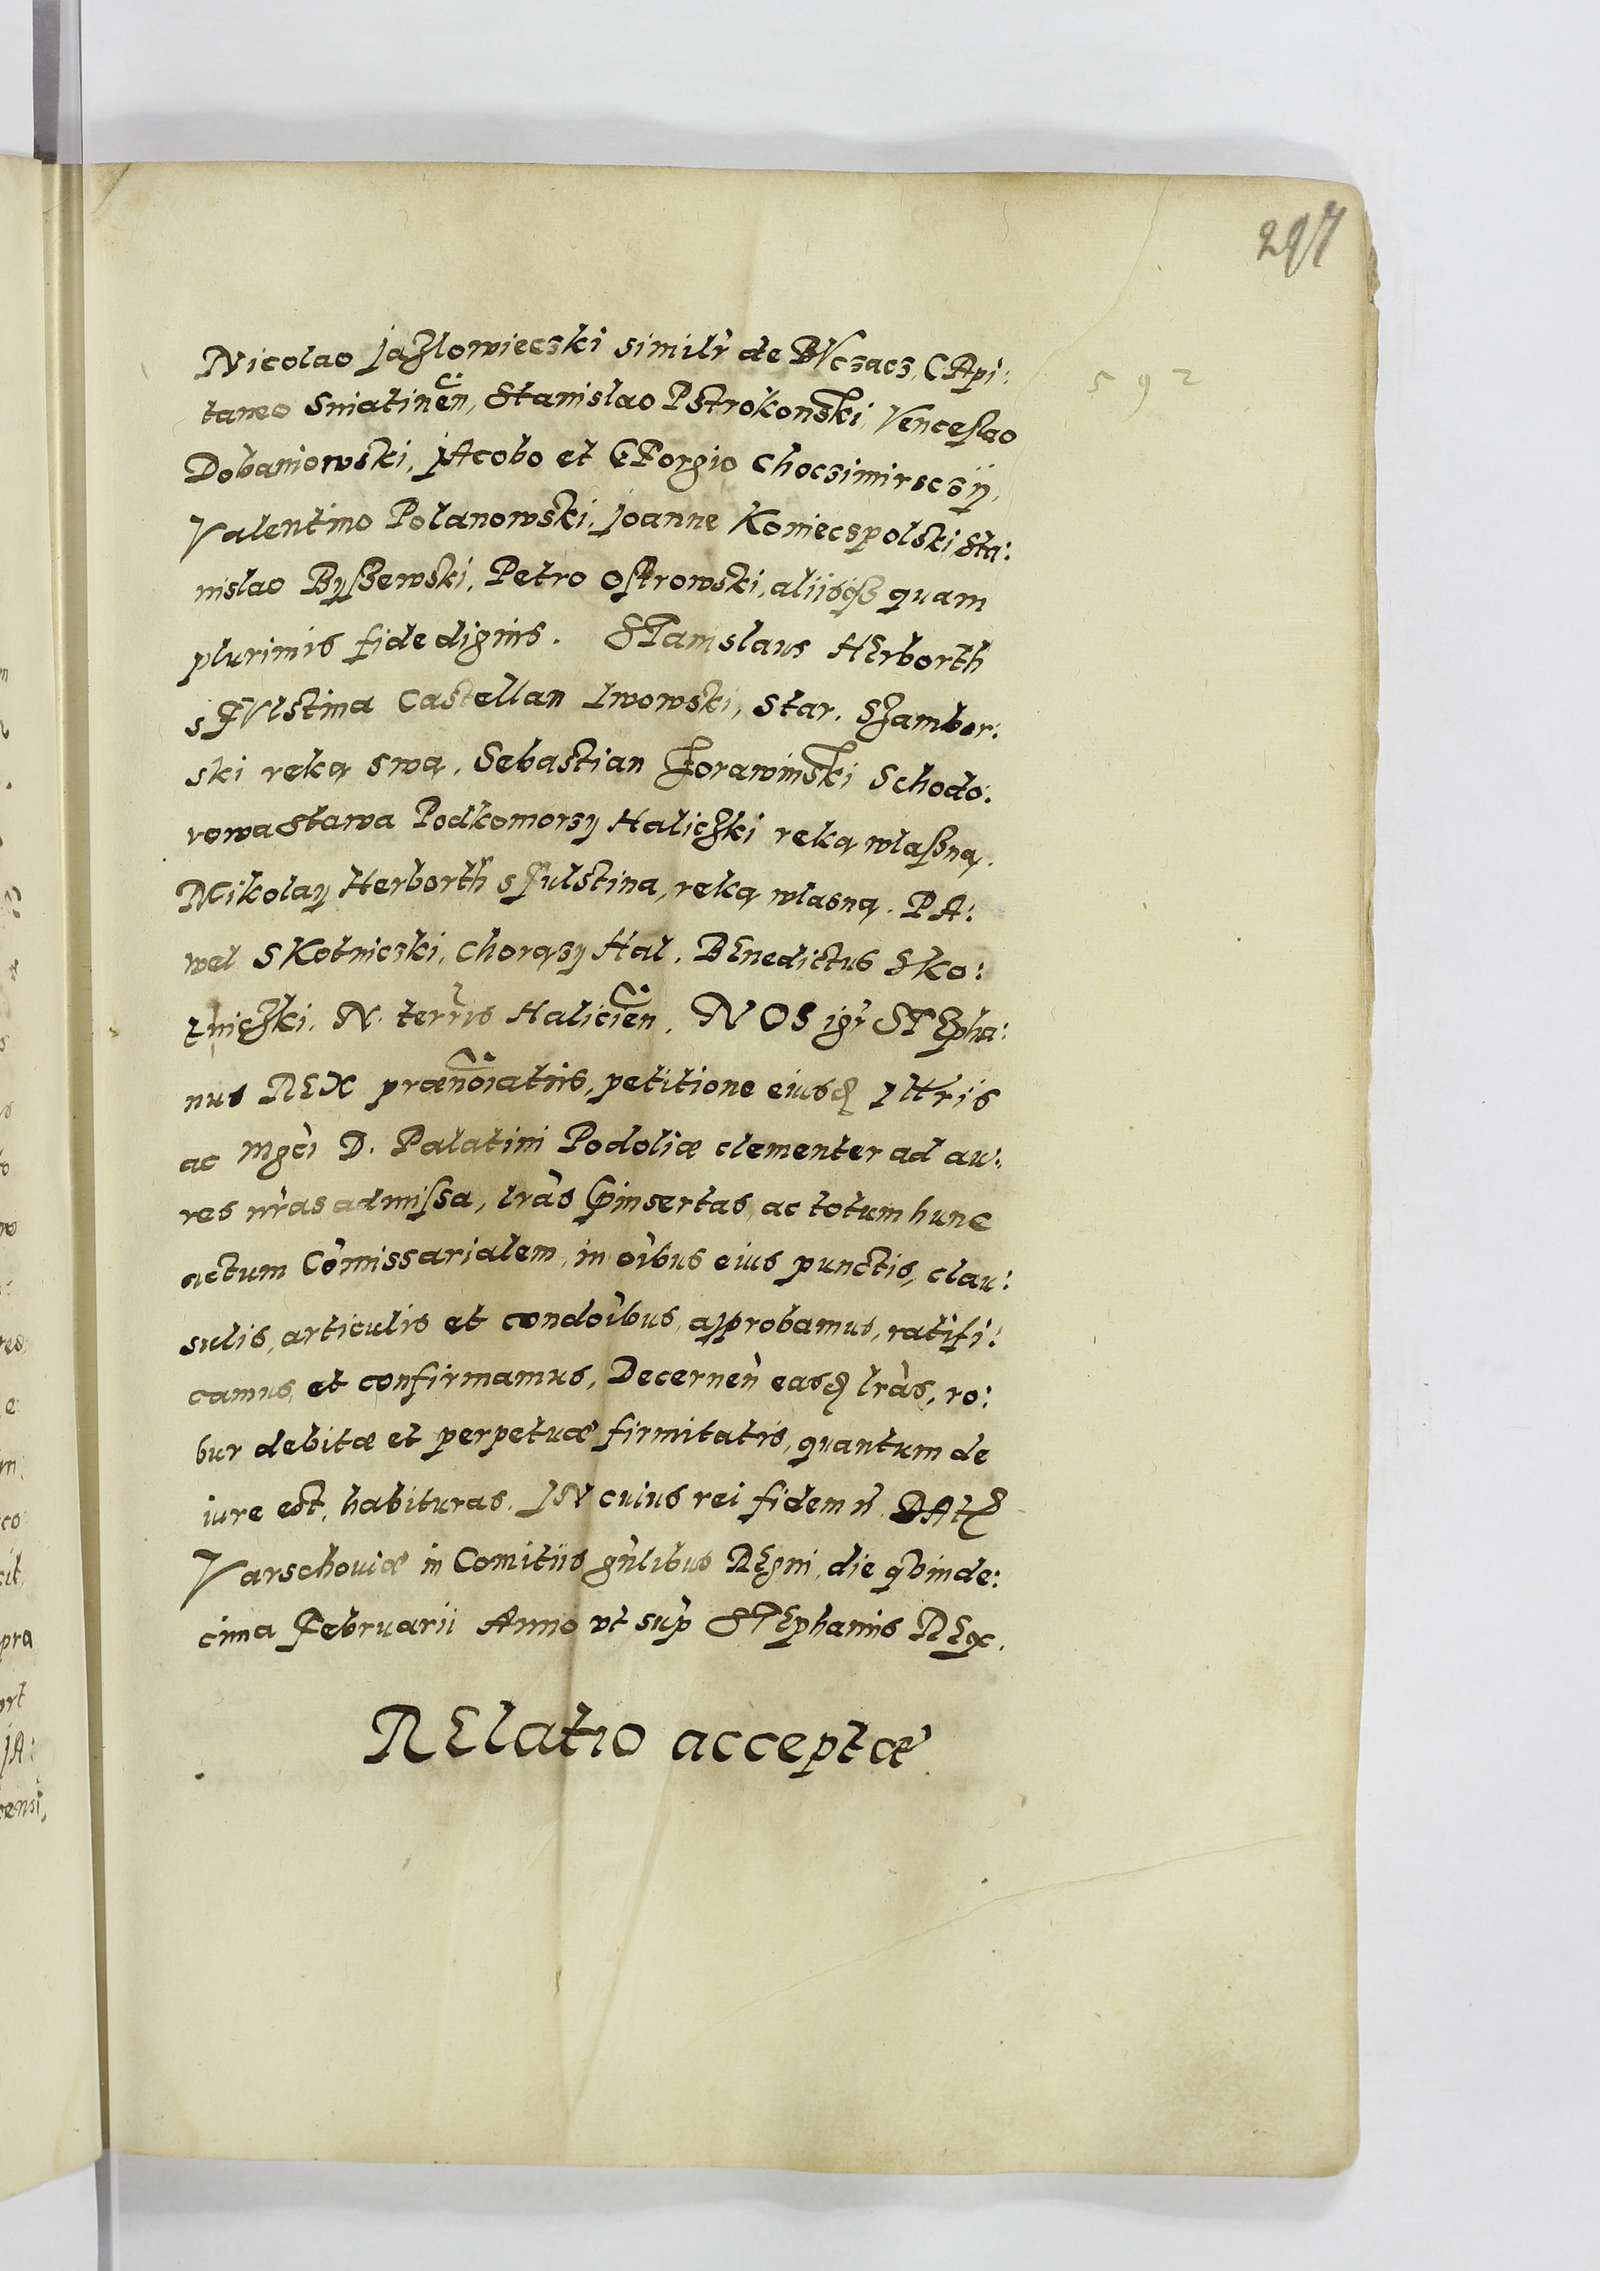 297
592
Nicolao Jazlowieczki similr de BVczacz, CApi:
taneo Sniatinen, Stanislao PStrokonski, Venceslao
Dobaniowski, JAcobo et GEorgio Choczimirsczÿ,
Valentino Polanowski, Joanne Konieczpolski Sta:
nislao Byszewski, Petro Ostrowski, aliisqȝ quam
plurimis fide dignis. STanislaus HErborth
z FVlstina Castellan Lwowski, Star. SZambor:
ski reką swą, Sebastian Zorawinski Schodo:
rowastawa Podkomorzy Haliczki reką własną.
Mikolay Herborth z Fulstina, reką własną. PA:
wel SKotniczki, Chorązy Hal. BEnedictus Sko:
tniczki. N. terris Halicien. NOS igr STEpha:
nus REX prænoiatus, petitione eiusd Illtris
ac Mgci D. Palatini Podoliæ clementer ad au:
res nras admissa, lras pinsertas, ac totum hunc
actum Comissarialem, in oibus eius punctis, clau:
sulis, articulis et condoibus, approbamus, ratifi:
camus, et confirmamus, Decernen easd lras, ro:
bur debitæ et perpetuæ firmitatis, quantum de
iure est, habituras. IN cuius rei fidem n. DAt
Varschouiæ in Comitiis gnlibus REgni, die qvinde:
cima Februarii Anno vt sup STEphanus REx.
RElatio acceptæ